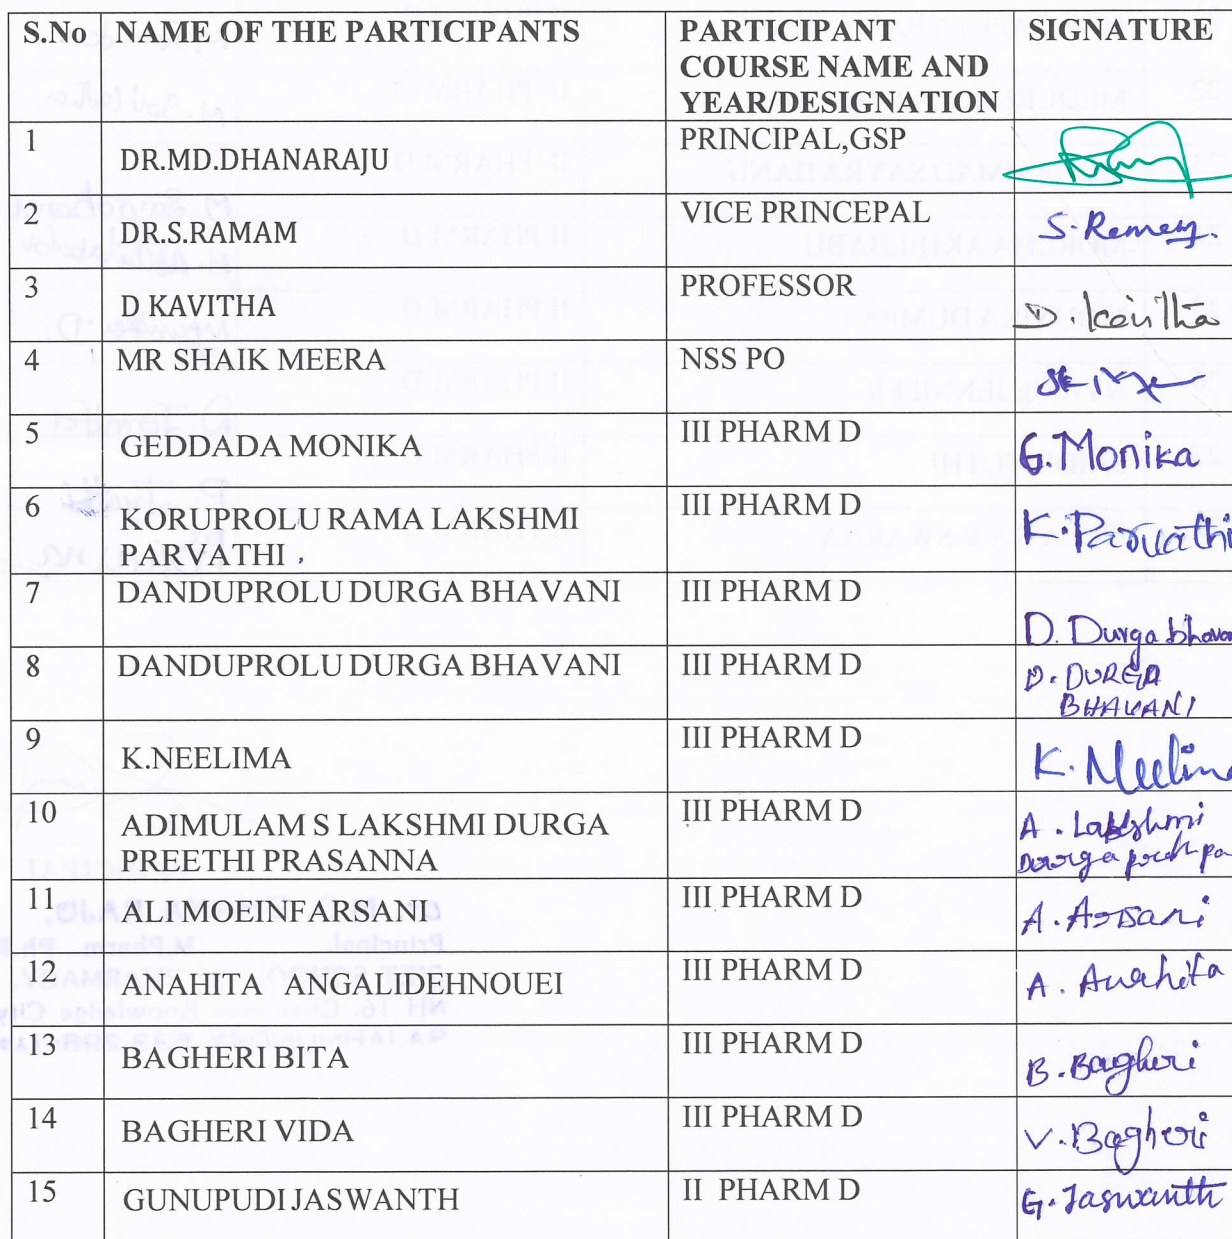 S.No NAME OF THE PARTICIPANTS PARTICIPANT COURSE NAME AND YEAR/DESIGNATION SIGNATURE
1 DR.MD.DHANARAJU PRINCIPAL,GSP
2 DR.S.RAMAM VICE PRINCEPAL S.Ramam
3 D KAVITHA PROFESSOR D.Kavitha
4 MR SHAIK MEERA NSS PO
5 GEDDADA MONIKA III PHARM D G.Monika
6 KORUPROLU RAMA LAKSHMI III PHARM D K.Parvathi
PARVATHI
7 DANDUPROLU DURGA BHAVANI III PHARM D D. Durga bhavan
8 DANDUPROLU DURGA BHAVANI III PHARM D D. DURGA
BHAVANI
9 K.NEELIMA III PHARM D K. Neelima
10 ADIMULAM S LAKSHMI DURGA III PHARM D A. Lakshmi
PREETHI PRASANNA Durga
11 ALI MOEINFARSANI III PHARM D A. Arsani
12 ANAHITA ANGALIDEHNOUEI III PHARM D A. Anahita
13 BAGHERI BITA III PHARM D B. Bagheri
14 BAGHERI VIDA III PHARM D V. Bagheri
15 GUNUPUDI JASWANTH II PHARM D G. Jaswanth